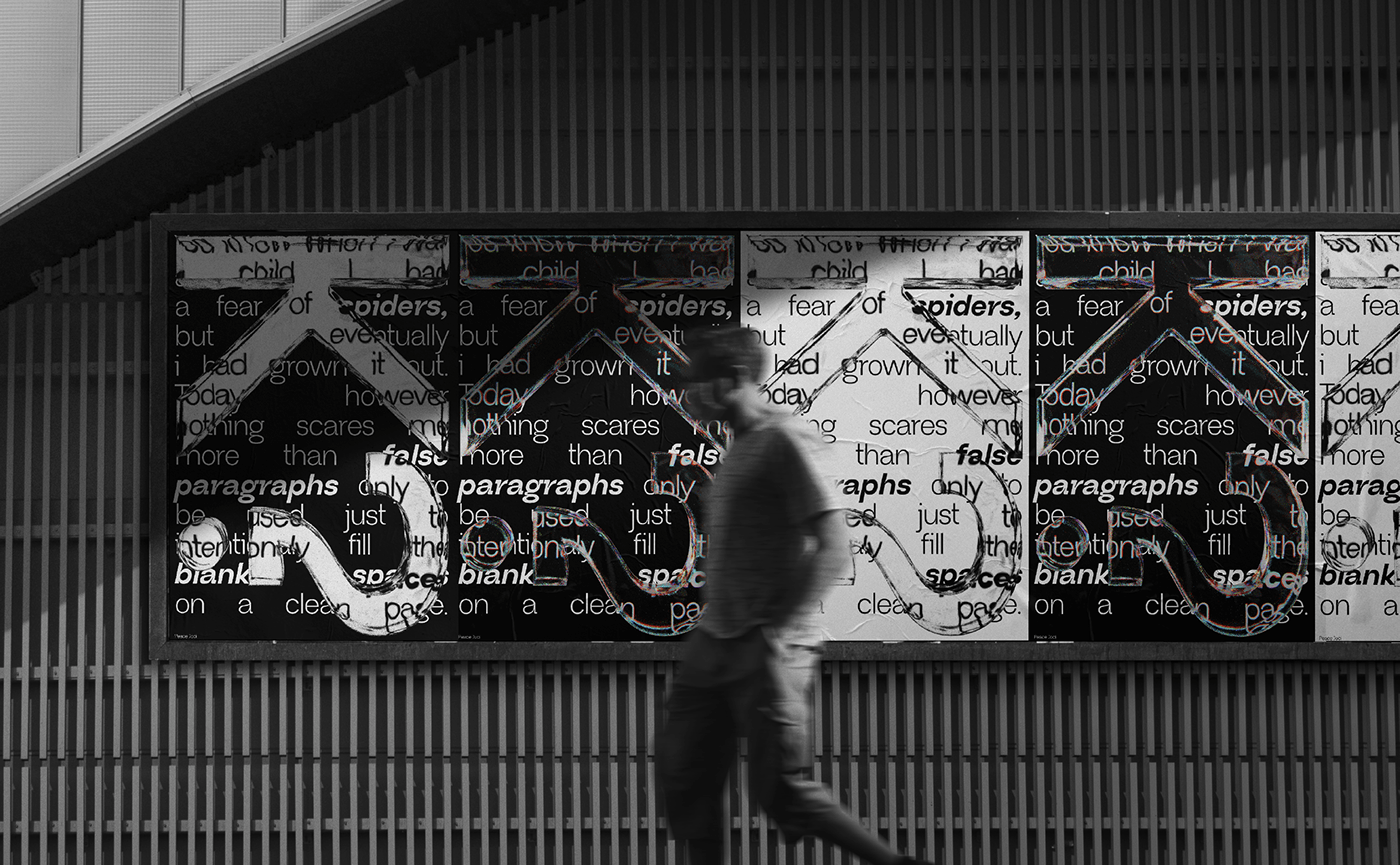 child I had
a fear of spiders,
but eventually
i had grown it out.
Today however
nothing scares me
more than false
paragraphs only to
be used just to
intentionaly fill the
blank spaces
on a clean page.
child I had
a fear of spiders,
but
i had grown it
Today
nothing scares me
more than false
paragraphs only
be used just
intentionaly fill
blank
on a clean
child I had
a fear of spiders,
but eventually
had grown it out.
Today however
scares me
than false
only to
just to
fill the
spaces
clean page.
child I had
a fear of spiders,
but eventually
i had grown it out.
Today however
nothing scares me
more than false
paragraphs only to
be used just to
intentionaly fill the
blank spaces
on a clean page.
child
a fear
but
i had
Today
nothing
more
be
blank
on a